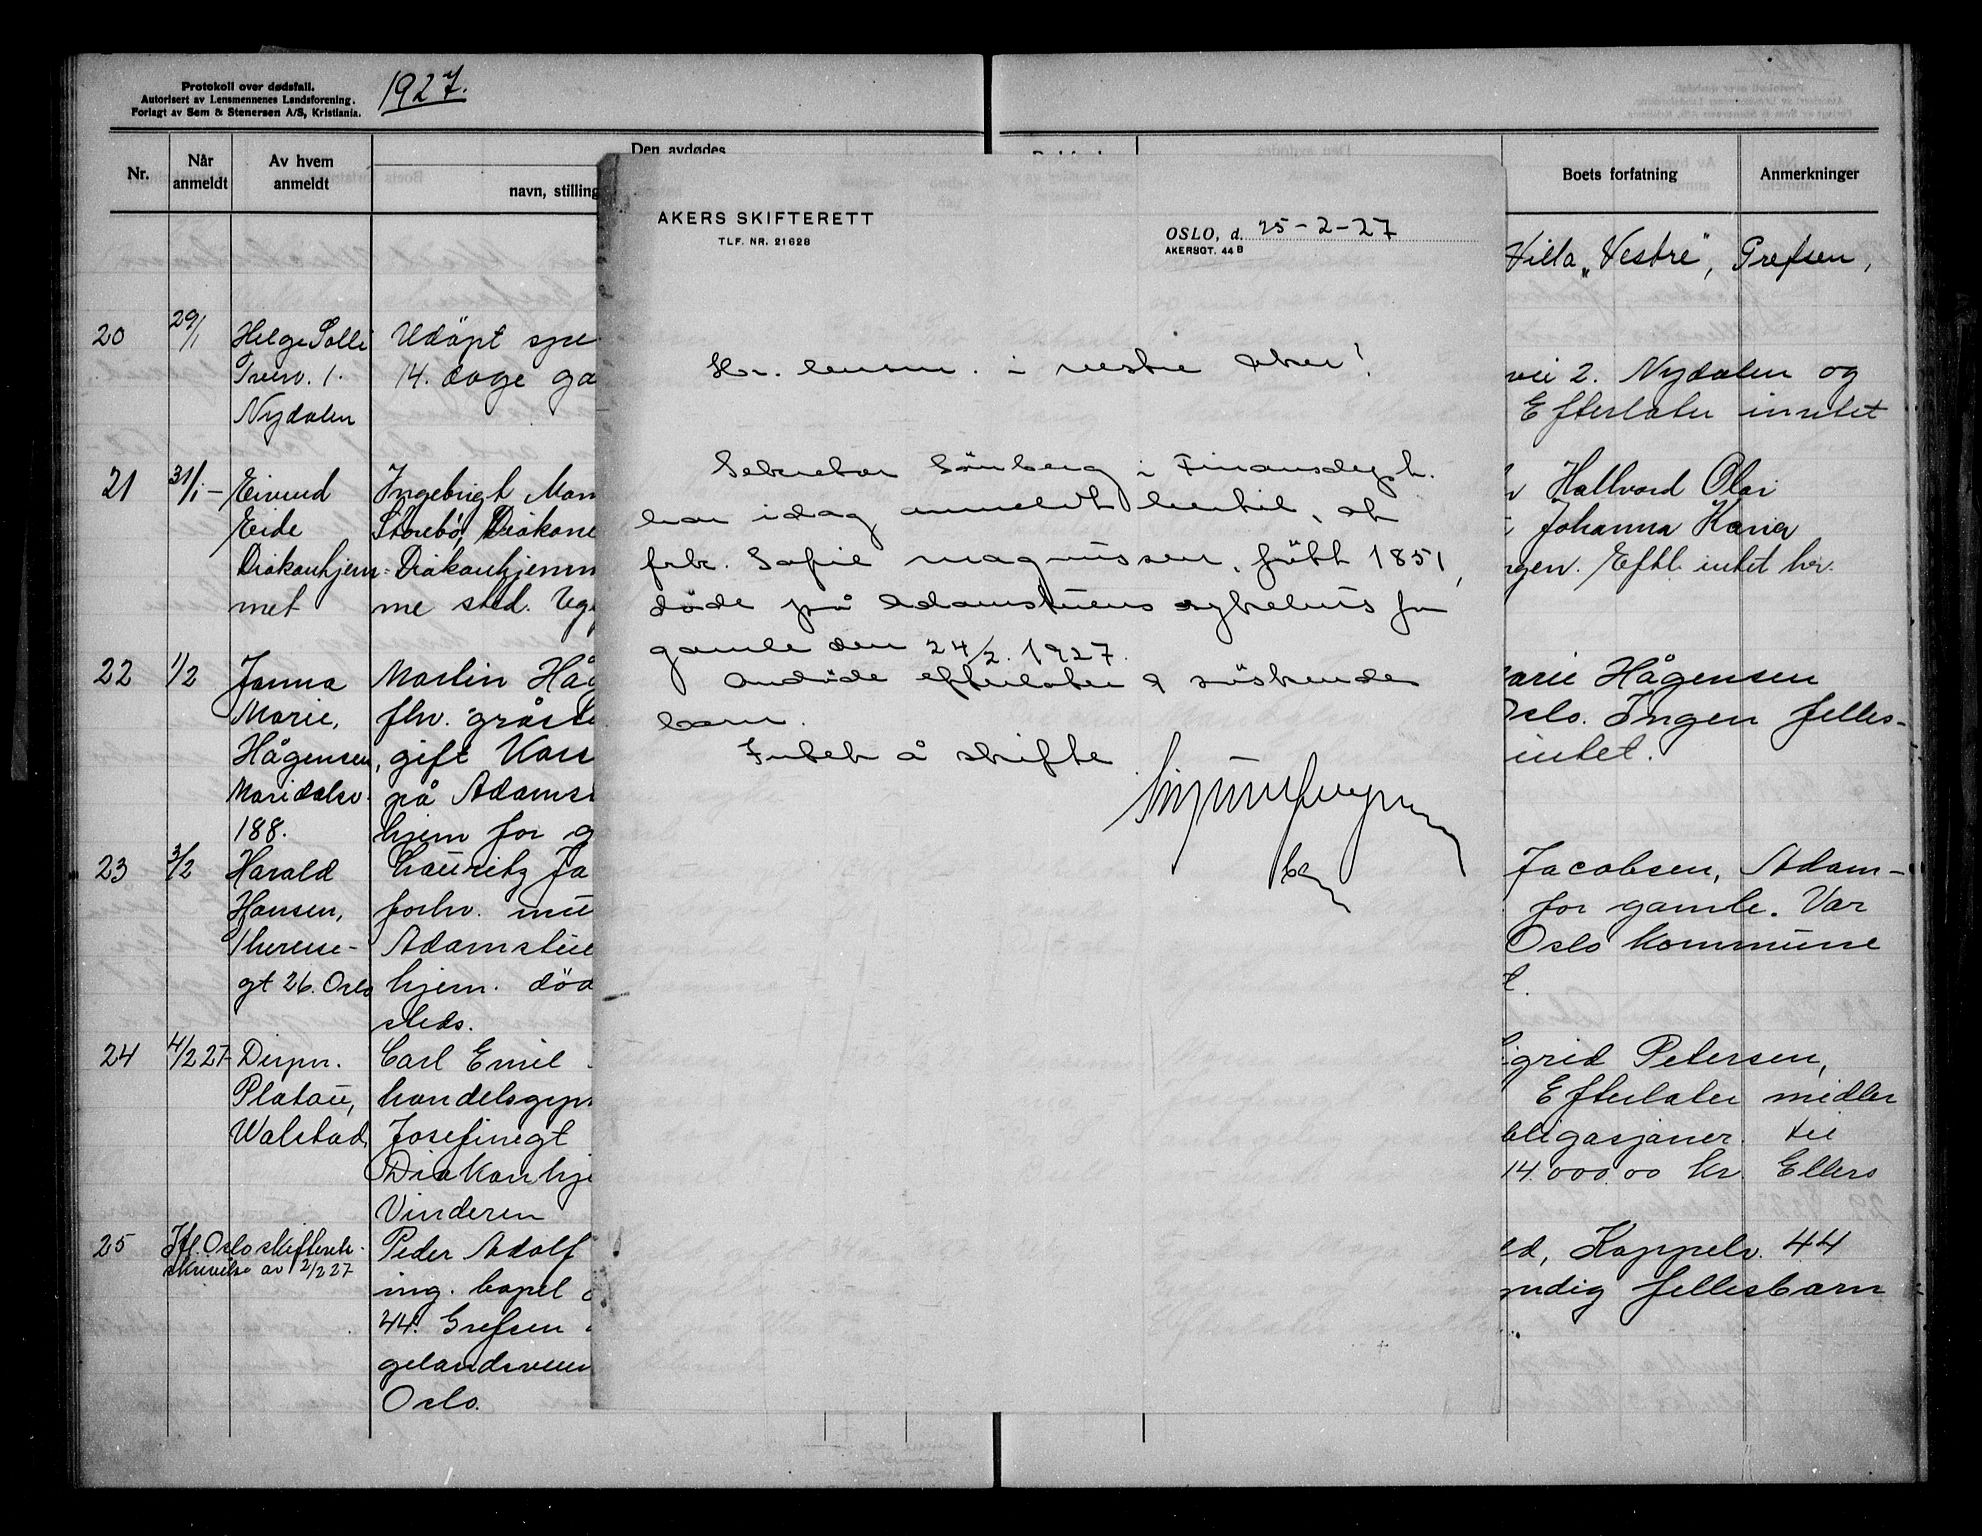 Protokoll over dødsfall.
Autorisert av Lensmennenes Landsforening.
Forlagt av Sem & Stenersen A/S, Kristiania.
1927.
Nr.
Når
anmeldt
Av hvem
anmeldt
Den avdødes
navn, stilling
Boets forfatning
Anmerkninger
Villa „Vestre", Grefsen,
20
29/1
Helge Solli
Tverv. 1.
Nydalen
Udöpt
14. dage
vei 2. Nydalen og
Efterlater intet
21
31/1 -
Eivind
Eide
Diakonhjem-
met
Ingebrigt
Storebö, Diakone
Diakonhjemm
me sted.
Hallvard Olai
Johanna Karia
Eftl. intet her.
22
1/2
Janna
Marie,
Hågensen,
Maridalsv.
188.
Martin Håg
fhv.
gift
på Adams
hjem for g
arie Hågensen
Oslo. Ingen felles-
intet.
23
3/2
Harald
Hansen,
Therese-
gt 26. Oslo
Lauritz Ja
forhv.
Adamstue
hjem. död
steds.
Jacobsen, Adam-
for gamle. Var
Oslo kommune
24
4/2 27
Dispn.
Platou,
Walstad
Carl Emil
handelsgym
Josefinegt
Diakonhje
Vinderen
igrid Petersen,
Efterlater midler
bligasjoner til
14.000.00 kr. Ellers
25
Ifl. Oslo skifterets
skrivelse av 2/2 27
Peder Adolf
ing. bopel
44. Grefsen
gelandsveien
Oslo.
ld, Kappelv. 44
yndig fellesbarn
AKERS SKIFTERETT
TLF. NR. 21628
OSLO, d. 25-2-27
AKERSGT. 44 B
Hr. lensm. i vestre Aker!
Sekretær Sönberg i Finansdept.
har idag anmeldt hertil, at
frk. Sofie Magnussen, född 1851,
döde på Adamstuens sykehus for
gamle den 24/2. 1927.
Avdöde efterlater 9 söskende
barn.
Intet å skifte